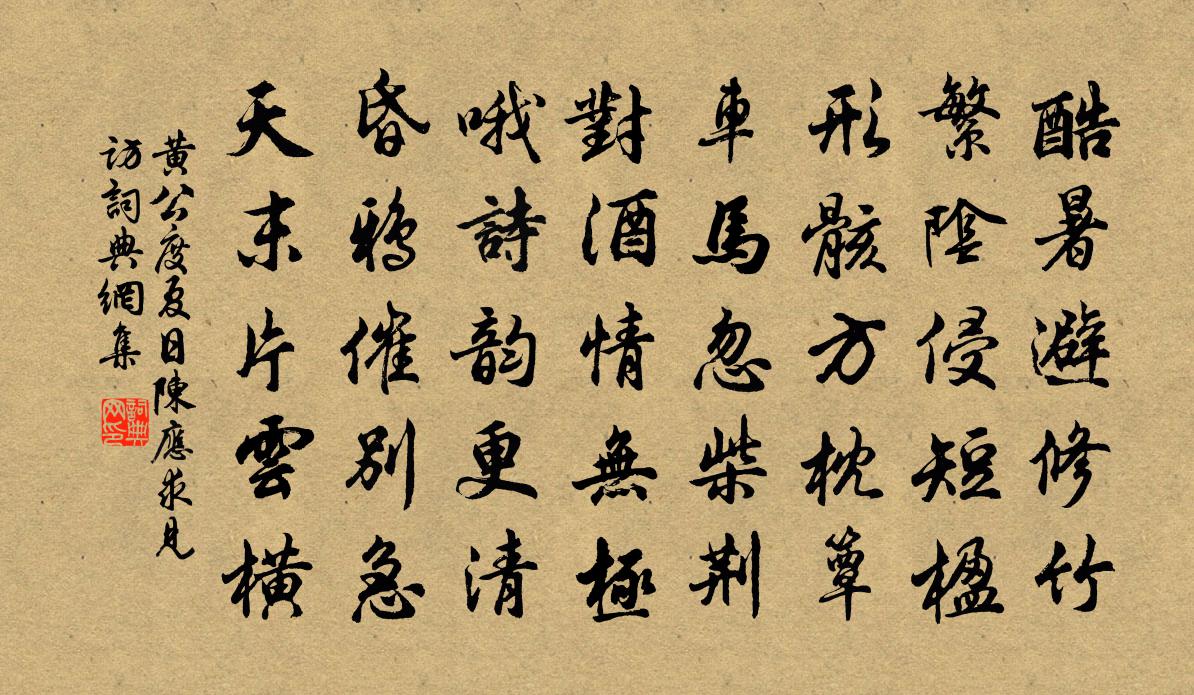 酷暑避修竹
繁陰侵短楹
形骸方枕簟
車馬忽柴荆
對酒情無極
哦詩韵更清
昏鴉催別急
天末片雲橫
黄公度夏日陳應求見
訪詞典網集
詞典
网印